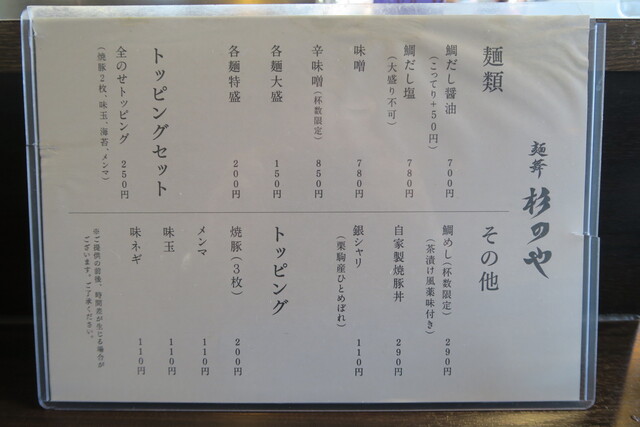 麺葊 杉のや
麺類
鯛だし醤油 700円
(こってり+50円)
鯛だし塩 780円
(大盛り不可)
味噌 780円
辛味噌(杯数限定) 850円
各麺大盛 150円
各麺特盛 200円
トッピングセット
全のせトッピング 250円
(焼豚2枚、味玉、海苔、メンマ)
その他
鯛めし(杯数限定) 290円
(茶漬け風薬味付き)
自家製焼豚丼 290円
銀シャリ 110円
(栗駒産ひとめぼれ)
トッピング
焼豚(3枚) 200円
メンマ 110円
味玉 110円
味ネギ 110円
※ご提供の前後、時間差が生じる場合が
ございます。ご了承ください。